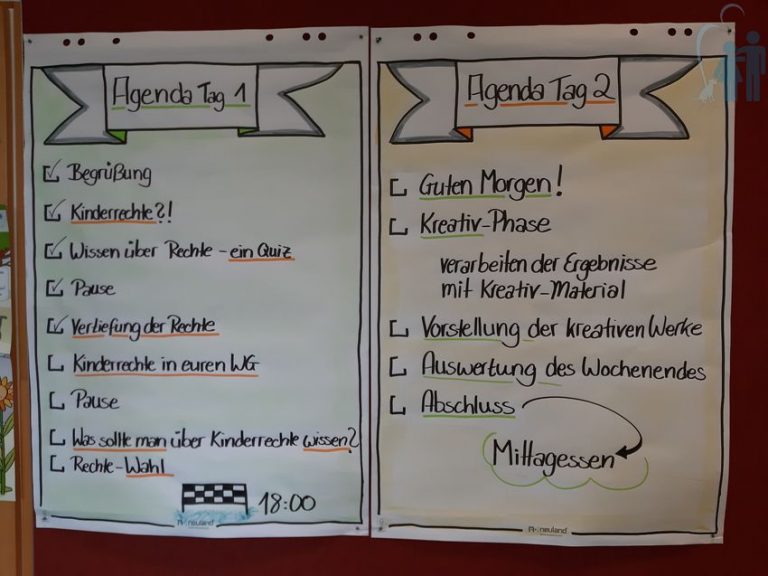 Agenda Tag 1
Begrüßung
Kinderrechte?!
Wissen über Rechte - ein Quiz
Pause
Vertiefung der Rechte
Kinderrechte in euren WG
Pause
Was sollte man über Kinderrechte wissen?
Rechte-Wahl
18:00
neuland
Agenda Tag 2
Guten Morgen!
Kreativ-Phase
verarbeiten der Ergebnisse
mit Kreativ-Material
Vorstellung der kreativen Werke
Auswertung des Wochenendes
Abschluss
Mittagessen
neuland